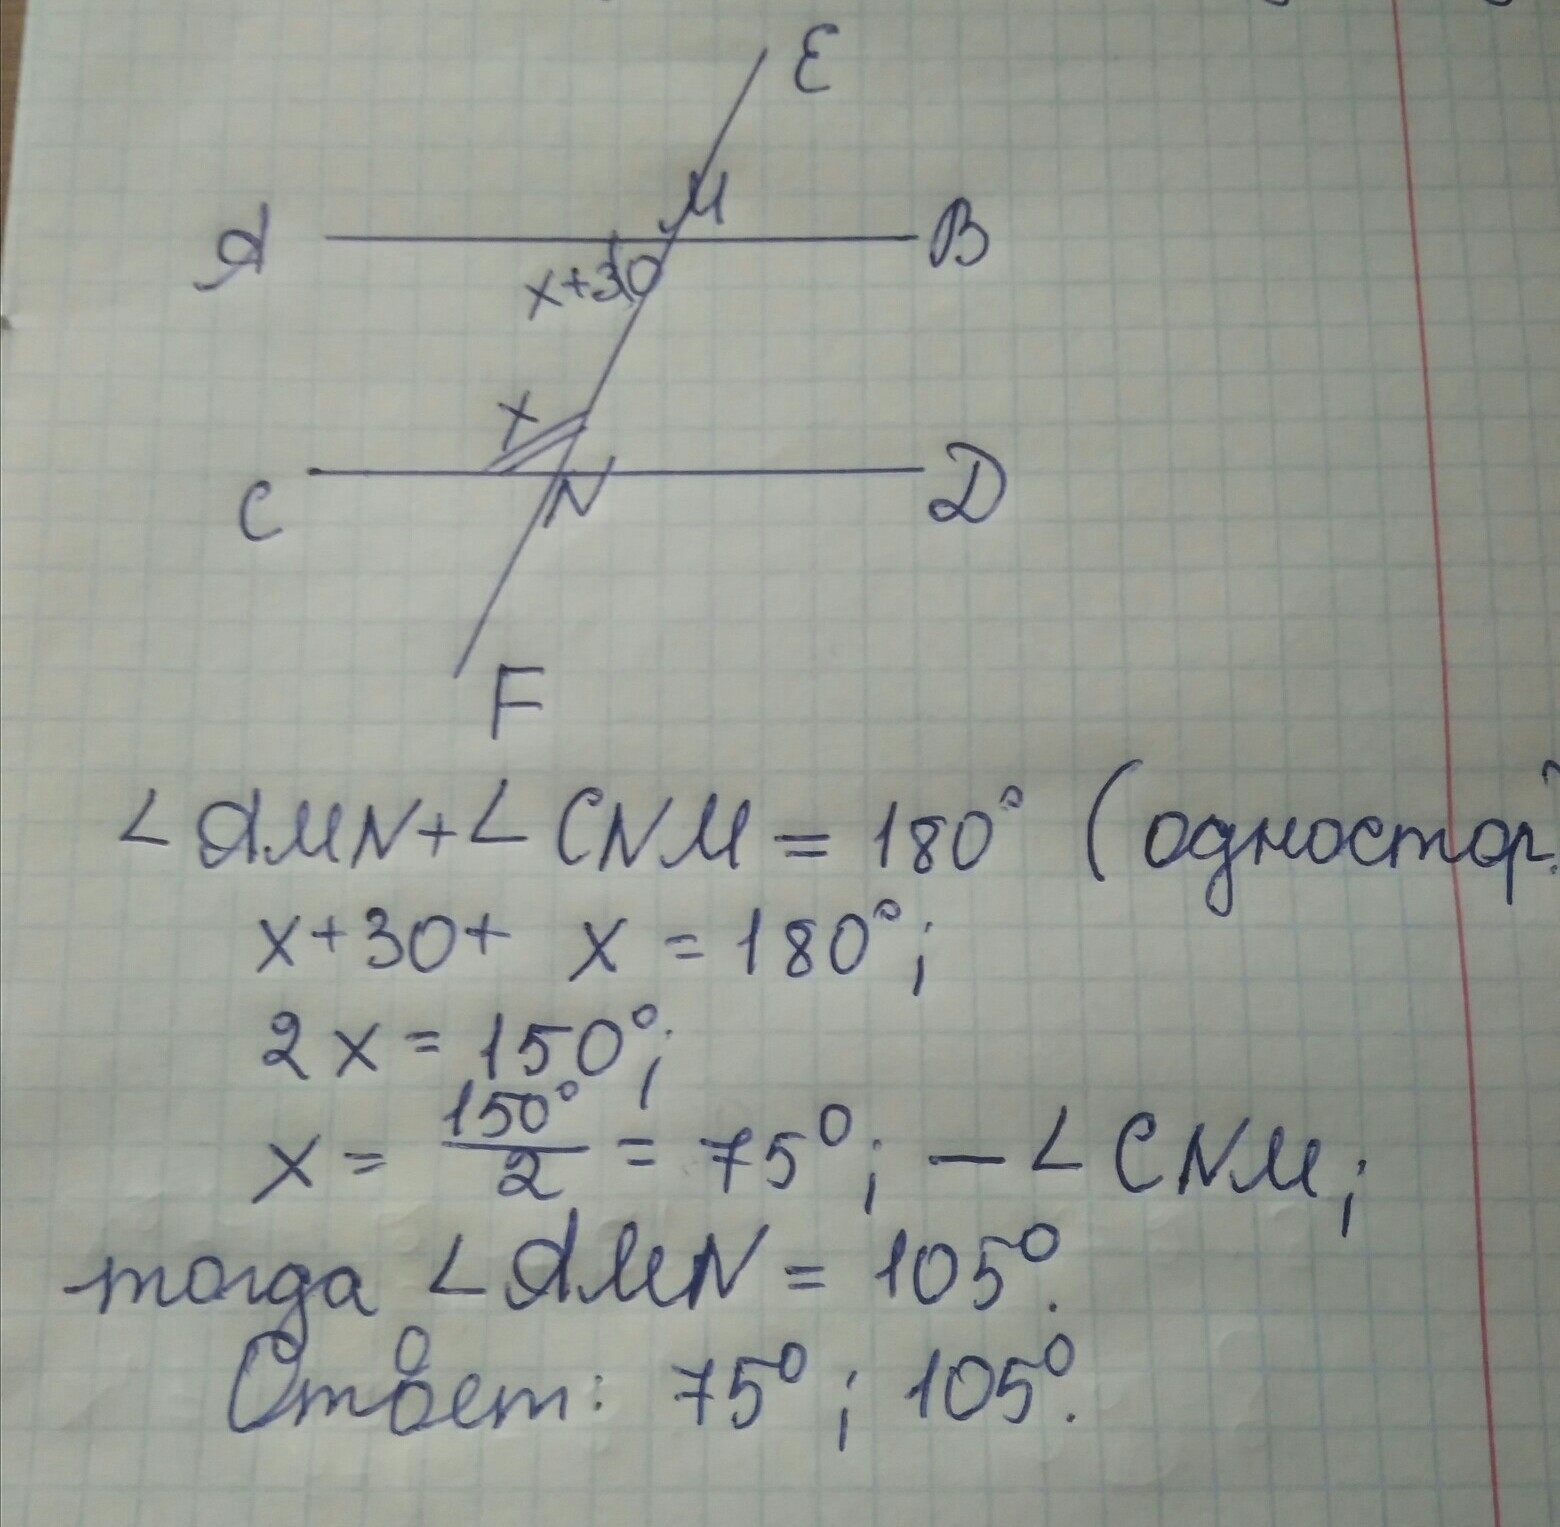 E
M
A B
x+30
x
C N D
F
∠AMN+∠CNM = 180° (одностор.
x+30+ x = 180°;
2x = 150°;
x = 150°/2 = 75°; — ∠CNM;
тогда ∠AMN = 105°.
Ответ: 75°; 105°.